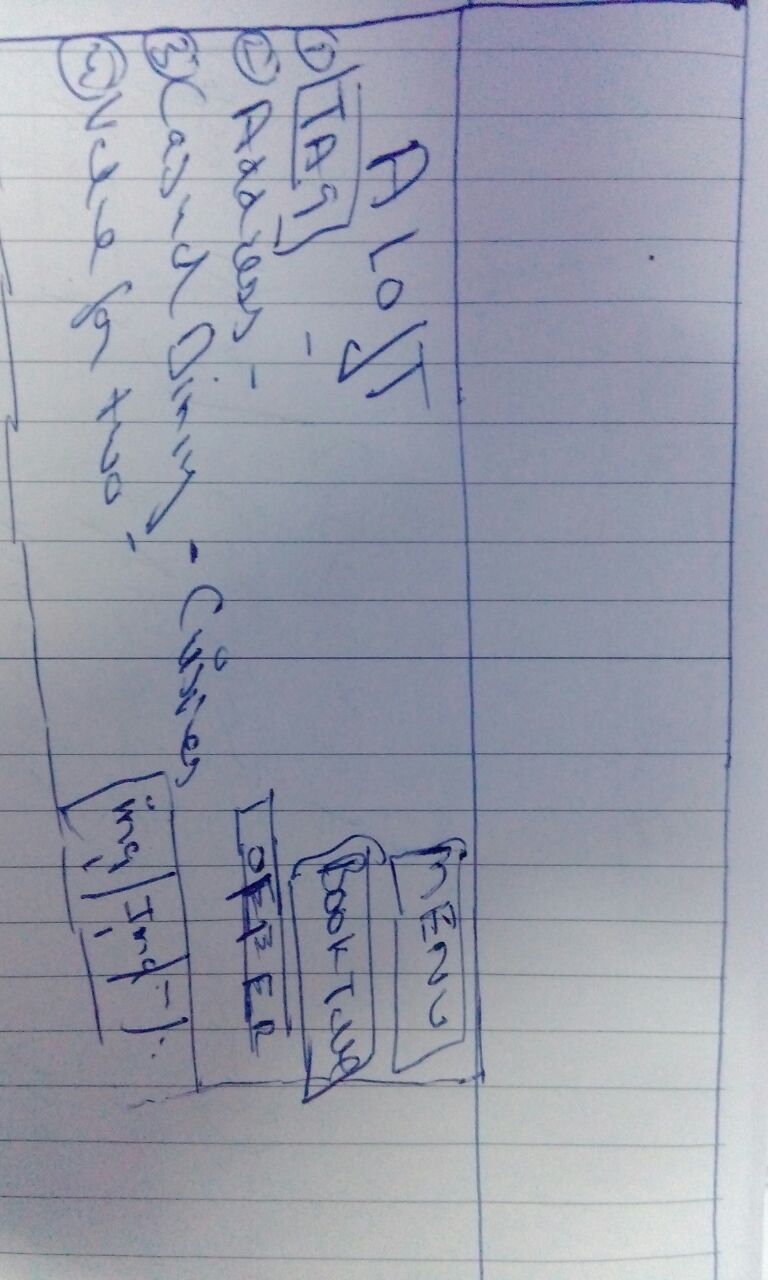 ALOFT
① TAG -
② Address -
③ Casual Dining - Cuisines
④ for two -
MENU
Book Table
OFFER
Img | Img |